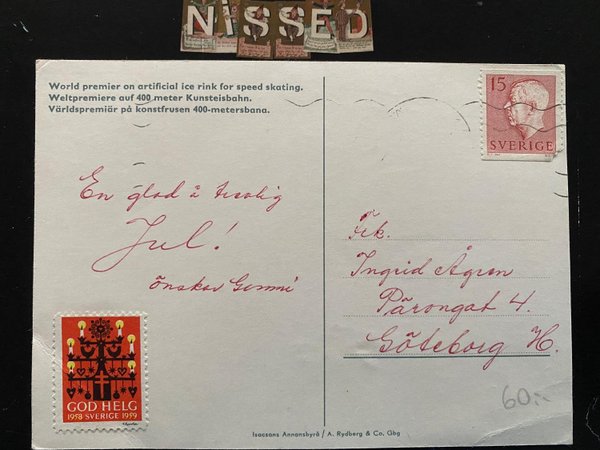 NISSED
World premier on artificial ice rink for speed skating.
Weltpremiere auf 400 meter Kunsteisbahn.
Världspremiär på konstfrusen 400-metersbana.
15
SVERIGE
En glad å trevlig
Jul!
önskar Gommi
Frk.
Ingrid Ågren
Pärongat 4.
Göteborg H.
GOD HELG
1958 SVERIGE 1959
60:-
Isacsons Annonsbyrå / A. Rydberg & Co. Gbg